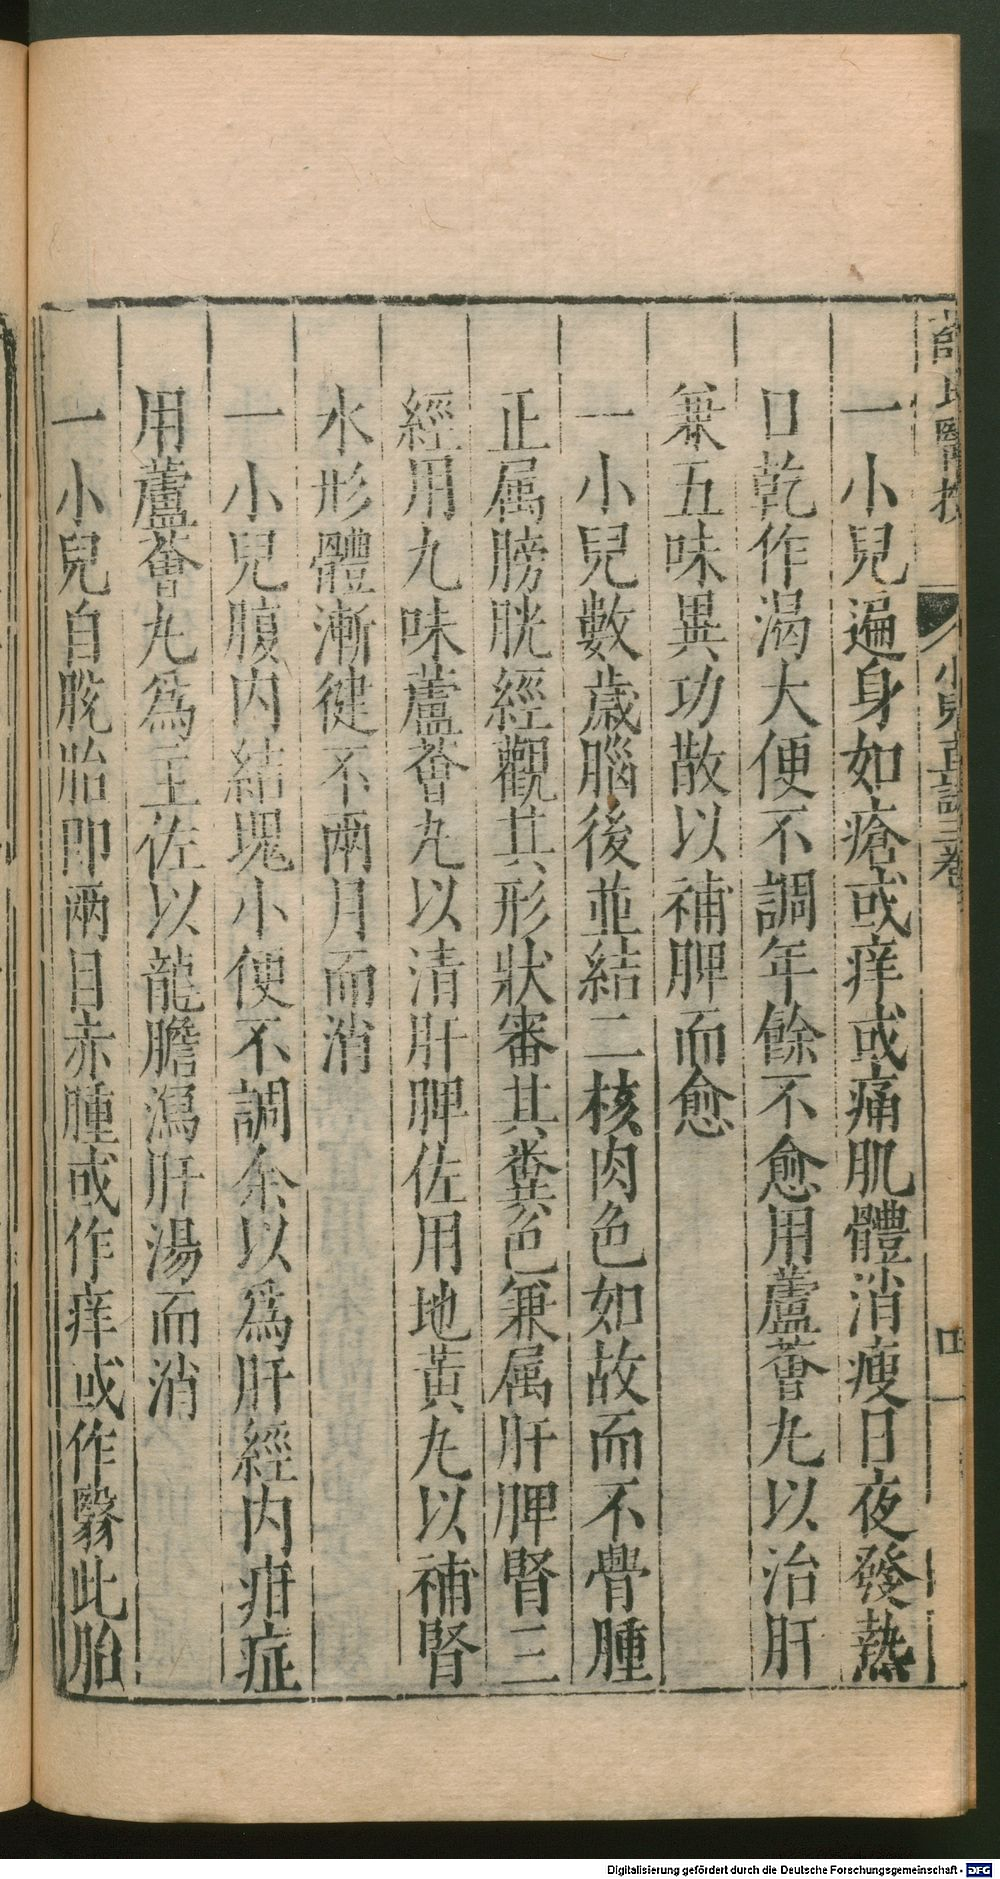 薛氏醫按 小兒直訣三卷 四
一小兒遍身如瘡或痒或痛肌體消瘦日夜發熱
口乾作渴大便不調年餘不愈用蘆薈丸以治肝
兼五味異功散以補脾而愈
一小兒數歲腦後並結二核肉色如故而不骨腫
正属膀胱經觀其形狀審其糞色兼属肝脾腎三
經用九味蘆薈丸以清肝脾佐用地黃丸以補腎
水形體漸健不兩月而消
一小兒腹内結塊小便不調余以為肝經内疳症
用蘆薈丸為主佐以龍膽瀉肝湯而消
一小兒自脫胎即兩目赤腫或作痒或作翳此胎
Digitalisierung gefördert durch die Deutsche Forschungsgemeinschaft - DFG